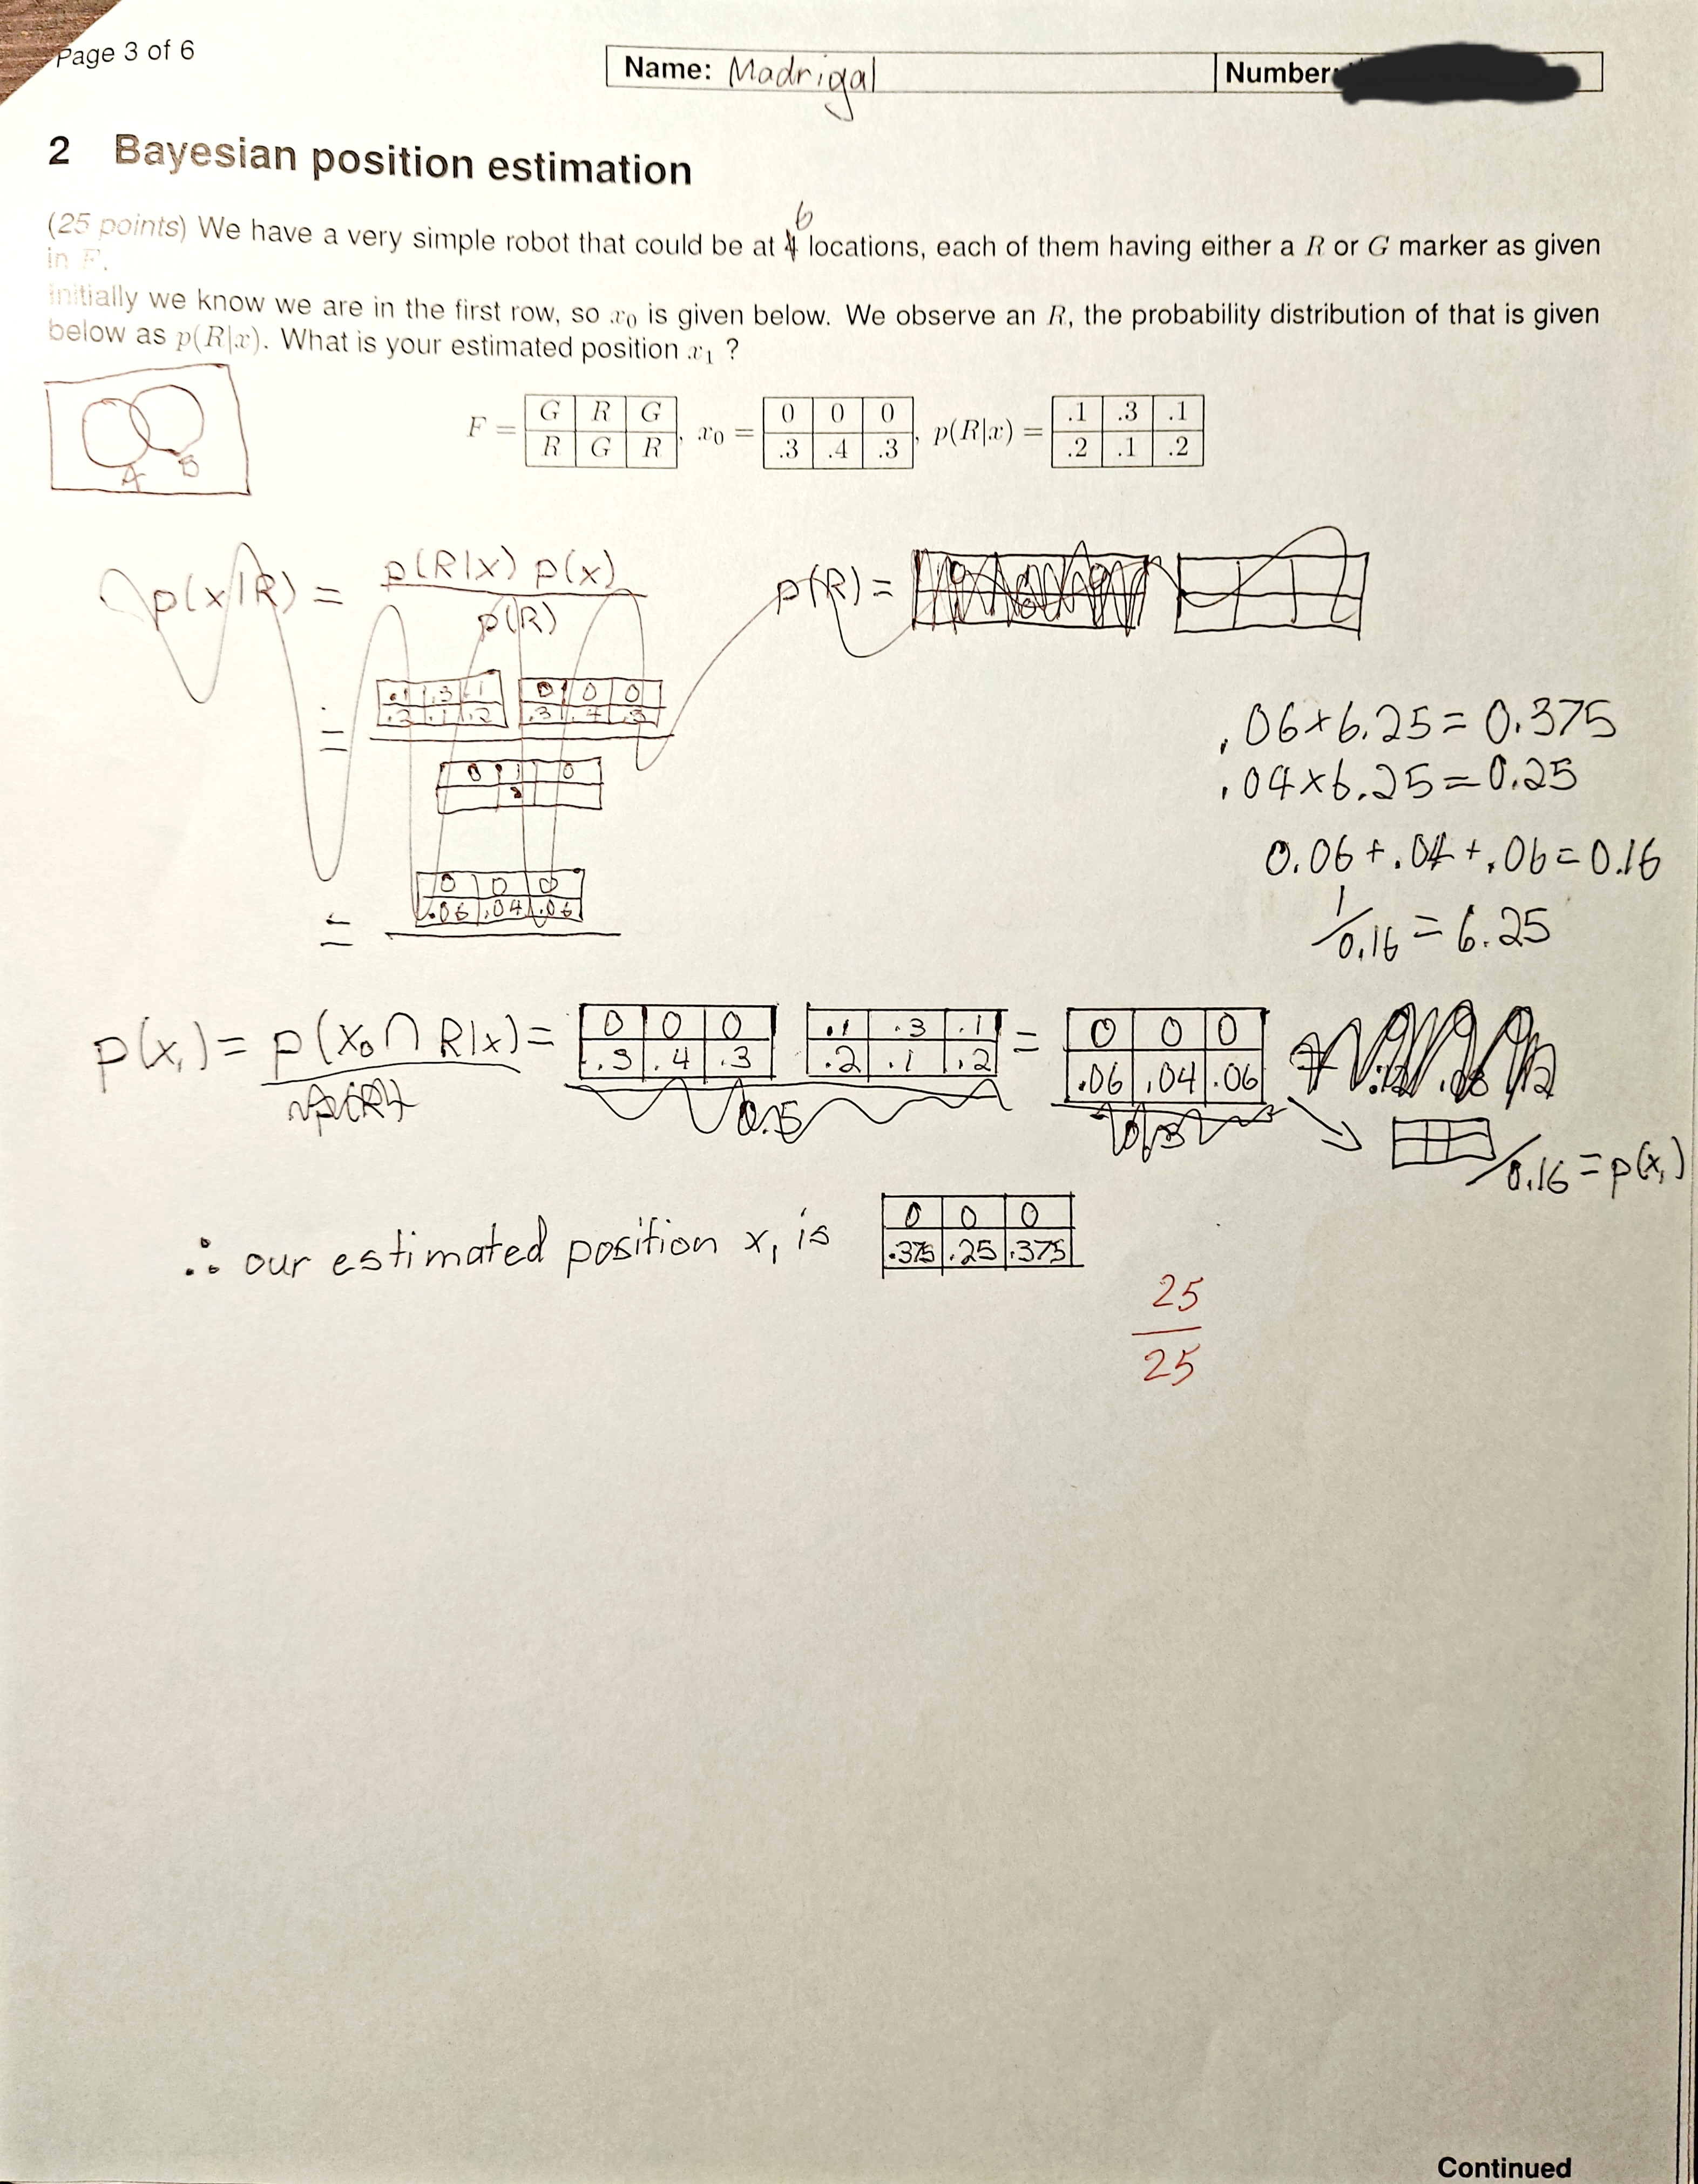 Page 3 of 6
Name: Madrigal
Number:
2 Bayesian position estimation
6
(25 points) We have a very simple robot that could be at 4 locations, each of them having either a R or G marker as given
in F.
Initially we know we are in the first row, so x₀ is given below. We observe an R, the probability distribution of that is given
below as p(R|x). What is your estimated position x₁ ?
A B
F = G R G , x₀ = 0 0 0 , p(R|x) = .1 .3 .1
R G R .3 .4 .3 .2 .1 .2
p(x|R) = p(R|x) p(x)
p(R)
p(R) =
= .1 .3 .1 0 0 0
.2 .1 .2 .3 .4 .3
0 0
.06 × 6.25 = 0.375
.04 × 6.25 = 0.25
0.06 + .04 + .06 = 0.16
= 0 0 0
.06 .04 .06
1/0.16 = 6.25
p(x₁) = p(x₀ ∩ R|x) = 0 0 0 .1 .3 .1 = 0 0 0
.3 .4 .3 .2 .1 .2 .06 .04 .06
0.5
/0.16 = p(x₁)
∴ our estimated position x₁ is 0 0 0
.375 .25 .375
25
25
Continued